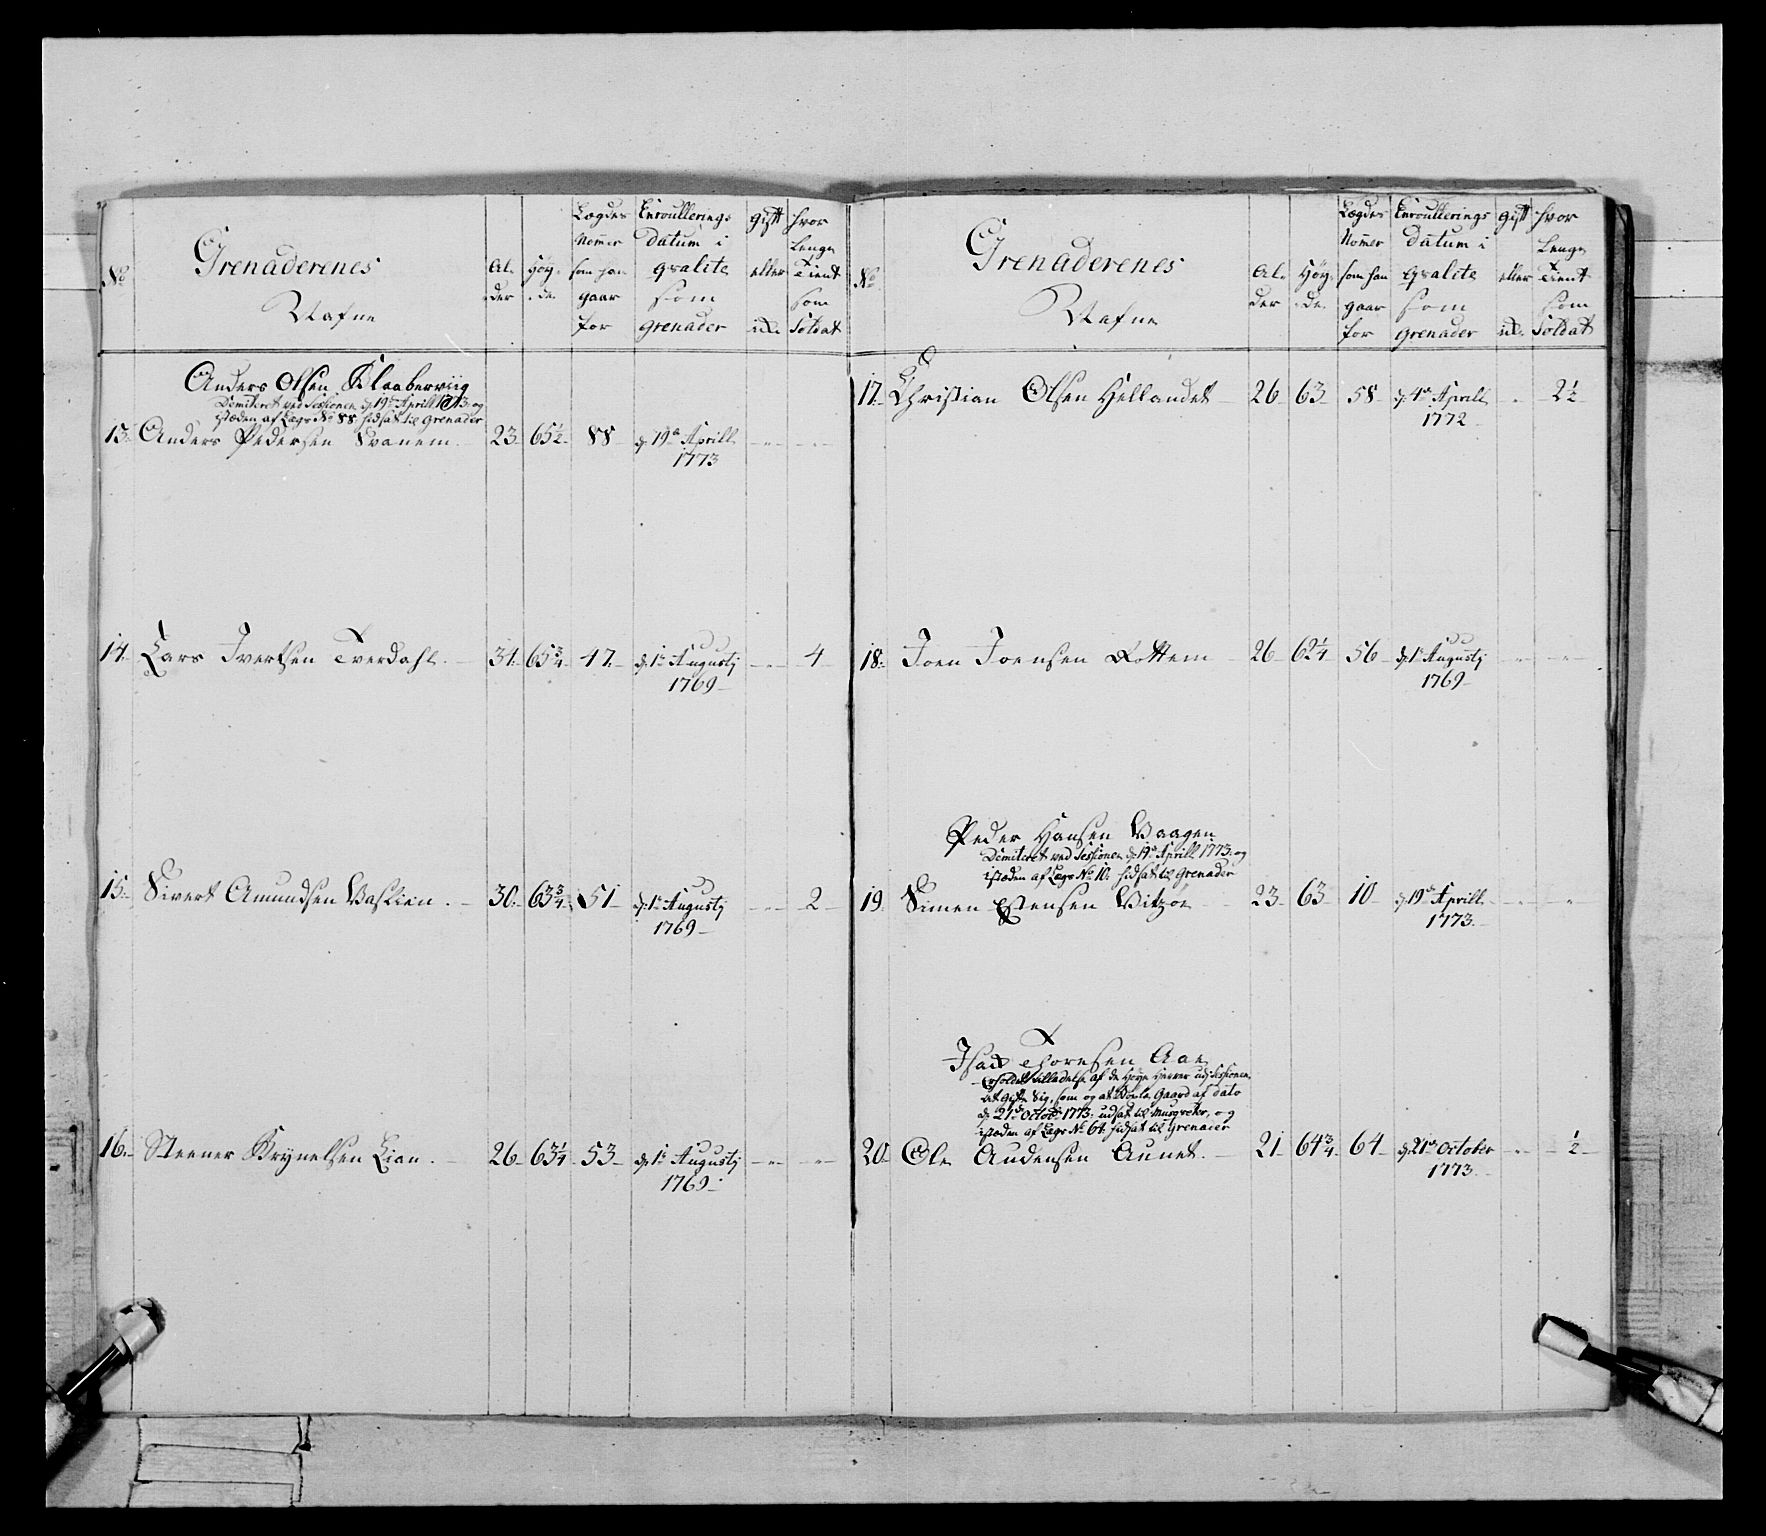 No
Grenaderenes
Nafne
Al-
der
Høy-
de.
Lægdes
Nomer
som han
gaar
for
Enroullerings
datum i
qvalite
som
grenader
gift
eller
ui.
hvor
Lenge
Tient
som
Soldat
Anders Olsen Klaaberviig
Dimiteret ved Sessionen d. 19de Aprill 1773. og
istæden af Lægs No 88. hidsat til Grenader
13. Anders Pedersen Svanem 23. 65½ 88 d. 19de Aprill
1773
14. Lars Ivertsen Tverdahl. 31. 65¾ 47. d. 1te Augustj 4
1769
15. Sivert Amundsen Vaslien. 30. 63¾ 51 d. 1te Augustj 2
1769
16. Steener Brynelsen Lian. 26 63¼ 53 d. 1te Augustj
1769
No
Grenaderenes
Nafne
Al-
der
Høy-
de.
Lægdes
Nomer
som han
gaar
for
Enroullerings
datum i
qvalite
som
grenader
gift
eller
ui.
hvor
Lenge
Tient
som
Soldat
17. Christian Olsen Hellandet 26 63 58 d. 4de Aprill 2½
1772
18. Joen Joensen Rottem 26 62¼ 56 d. 1te Augustj
1769
Peder Hansen Vaagen
Dimiteret ved Sessionen d. 19de Aprill 1773. og
istæden af Lægs No 10. hidsat til Grenader
19. Simen Estensen Vitzøe 23 63 10 d. 19de Aprill
1773.
Isach Thoresen Aae
Erholdet tilladelse af de Høye Herrer udj Sessionen
at gifte sig, som og at Gaard af dato
d. 21de Octobr 1773. udsat til Musqveter, og
istæden af Lægs No 64. hidsat til Grenader
20. Ole Audensen Aunet. 21 64¾ 64 d. 21de October ½
1773.